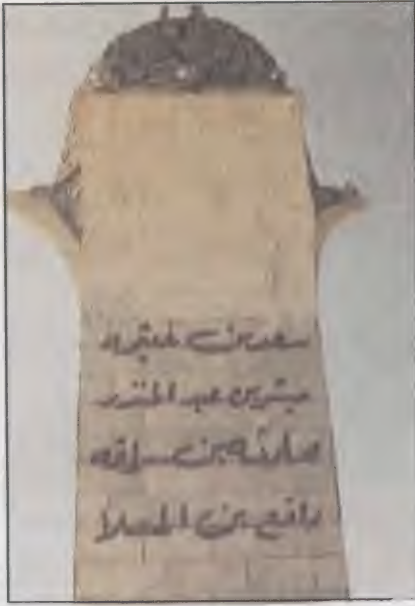 سعد بن خيثمه
مبشر بن عبد المنذر
حارثه بن سراقه
رافع بن المعلا